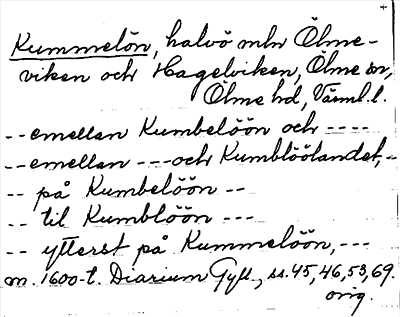 Kummelön, halvö mln Ölme-
viken och Hagelviken, Ölme sn,
Ölme hd, Värml. l.
-- emellan Kumbelöön och ----
-- emellan --- och Kumblöölandet, --
-- på Kumbelöön --
-- til Kumblöön ---
-- ytterst på Kummelöön, ---
m. 1600-t. Diarium Gyll., ss. 45, 46, 53, 69.
orig.